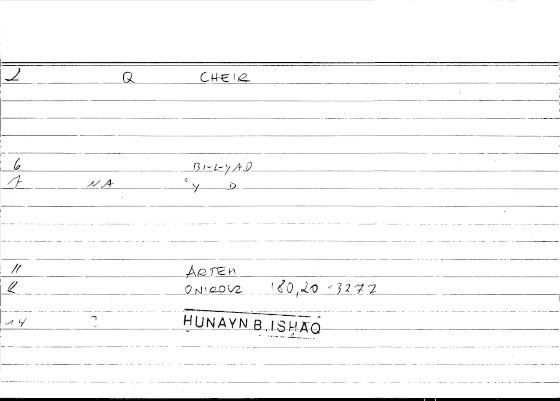 2 Q CHEIR
6 BI-L-YAD
7 NA Y D
11 ARTEM
12 ONIROUZ 180,20 - 3272
14 ? HUNAYN B. ISHAQ